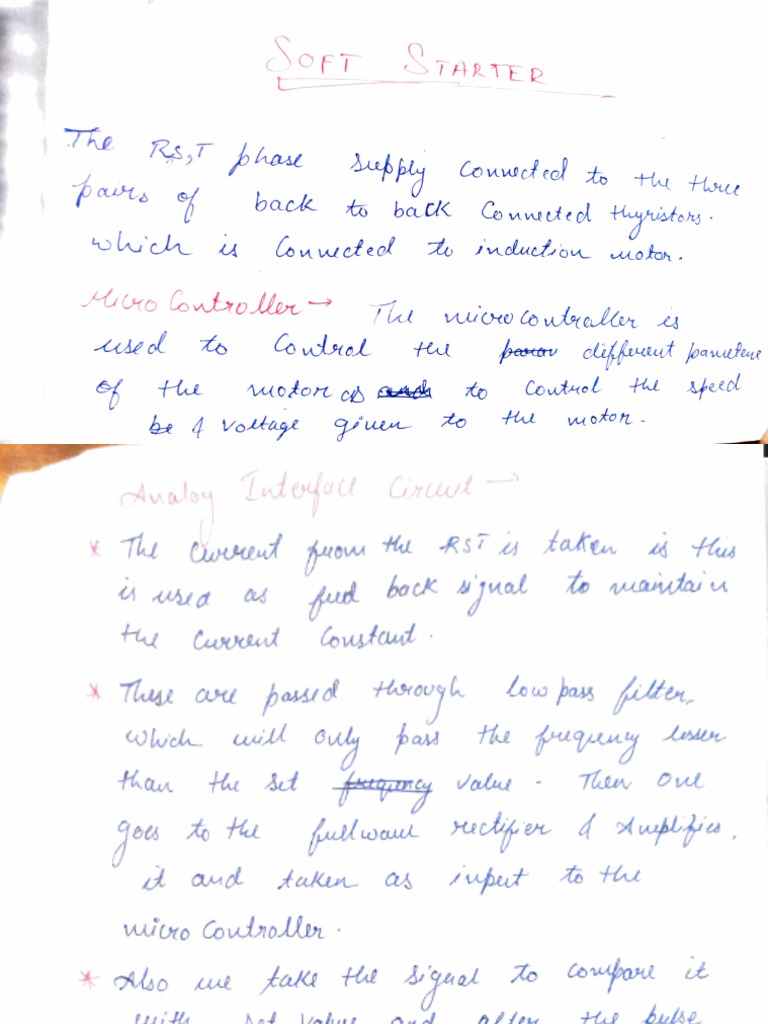 SOFT STARTER
The RS,T phase supply connected to the three
pairs of back to back connected thyristors.
which is connected to induction motor.
Micro Controller →  The microcontroller is
used to control the different
of the motor as to control the speed
& voltage given to the motor.
Analog Interface Circuit →
* The current from the RST is taken is this
is used as feed back signal to maintain
the current constant.
* These are passed through low pass filter,
which will only pass the frequency lesser
than the set frequency value. Then one
goes to the fullwave rectifier & Amplifies,
it and taken as input to the
micro Controller.
* Also we take the signal to compare it
with set value and alter the pulse